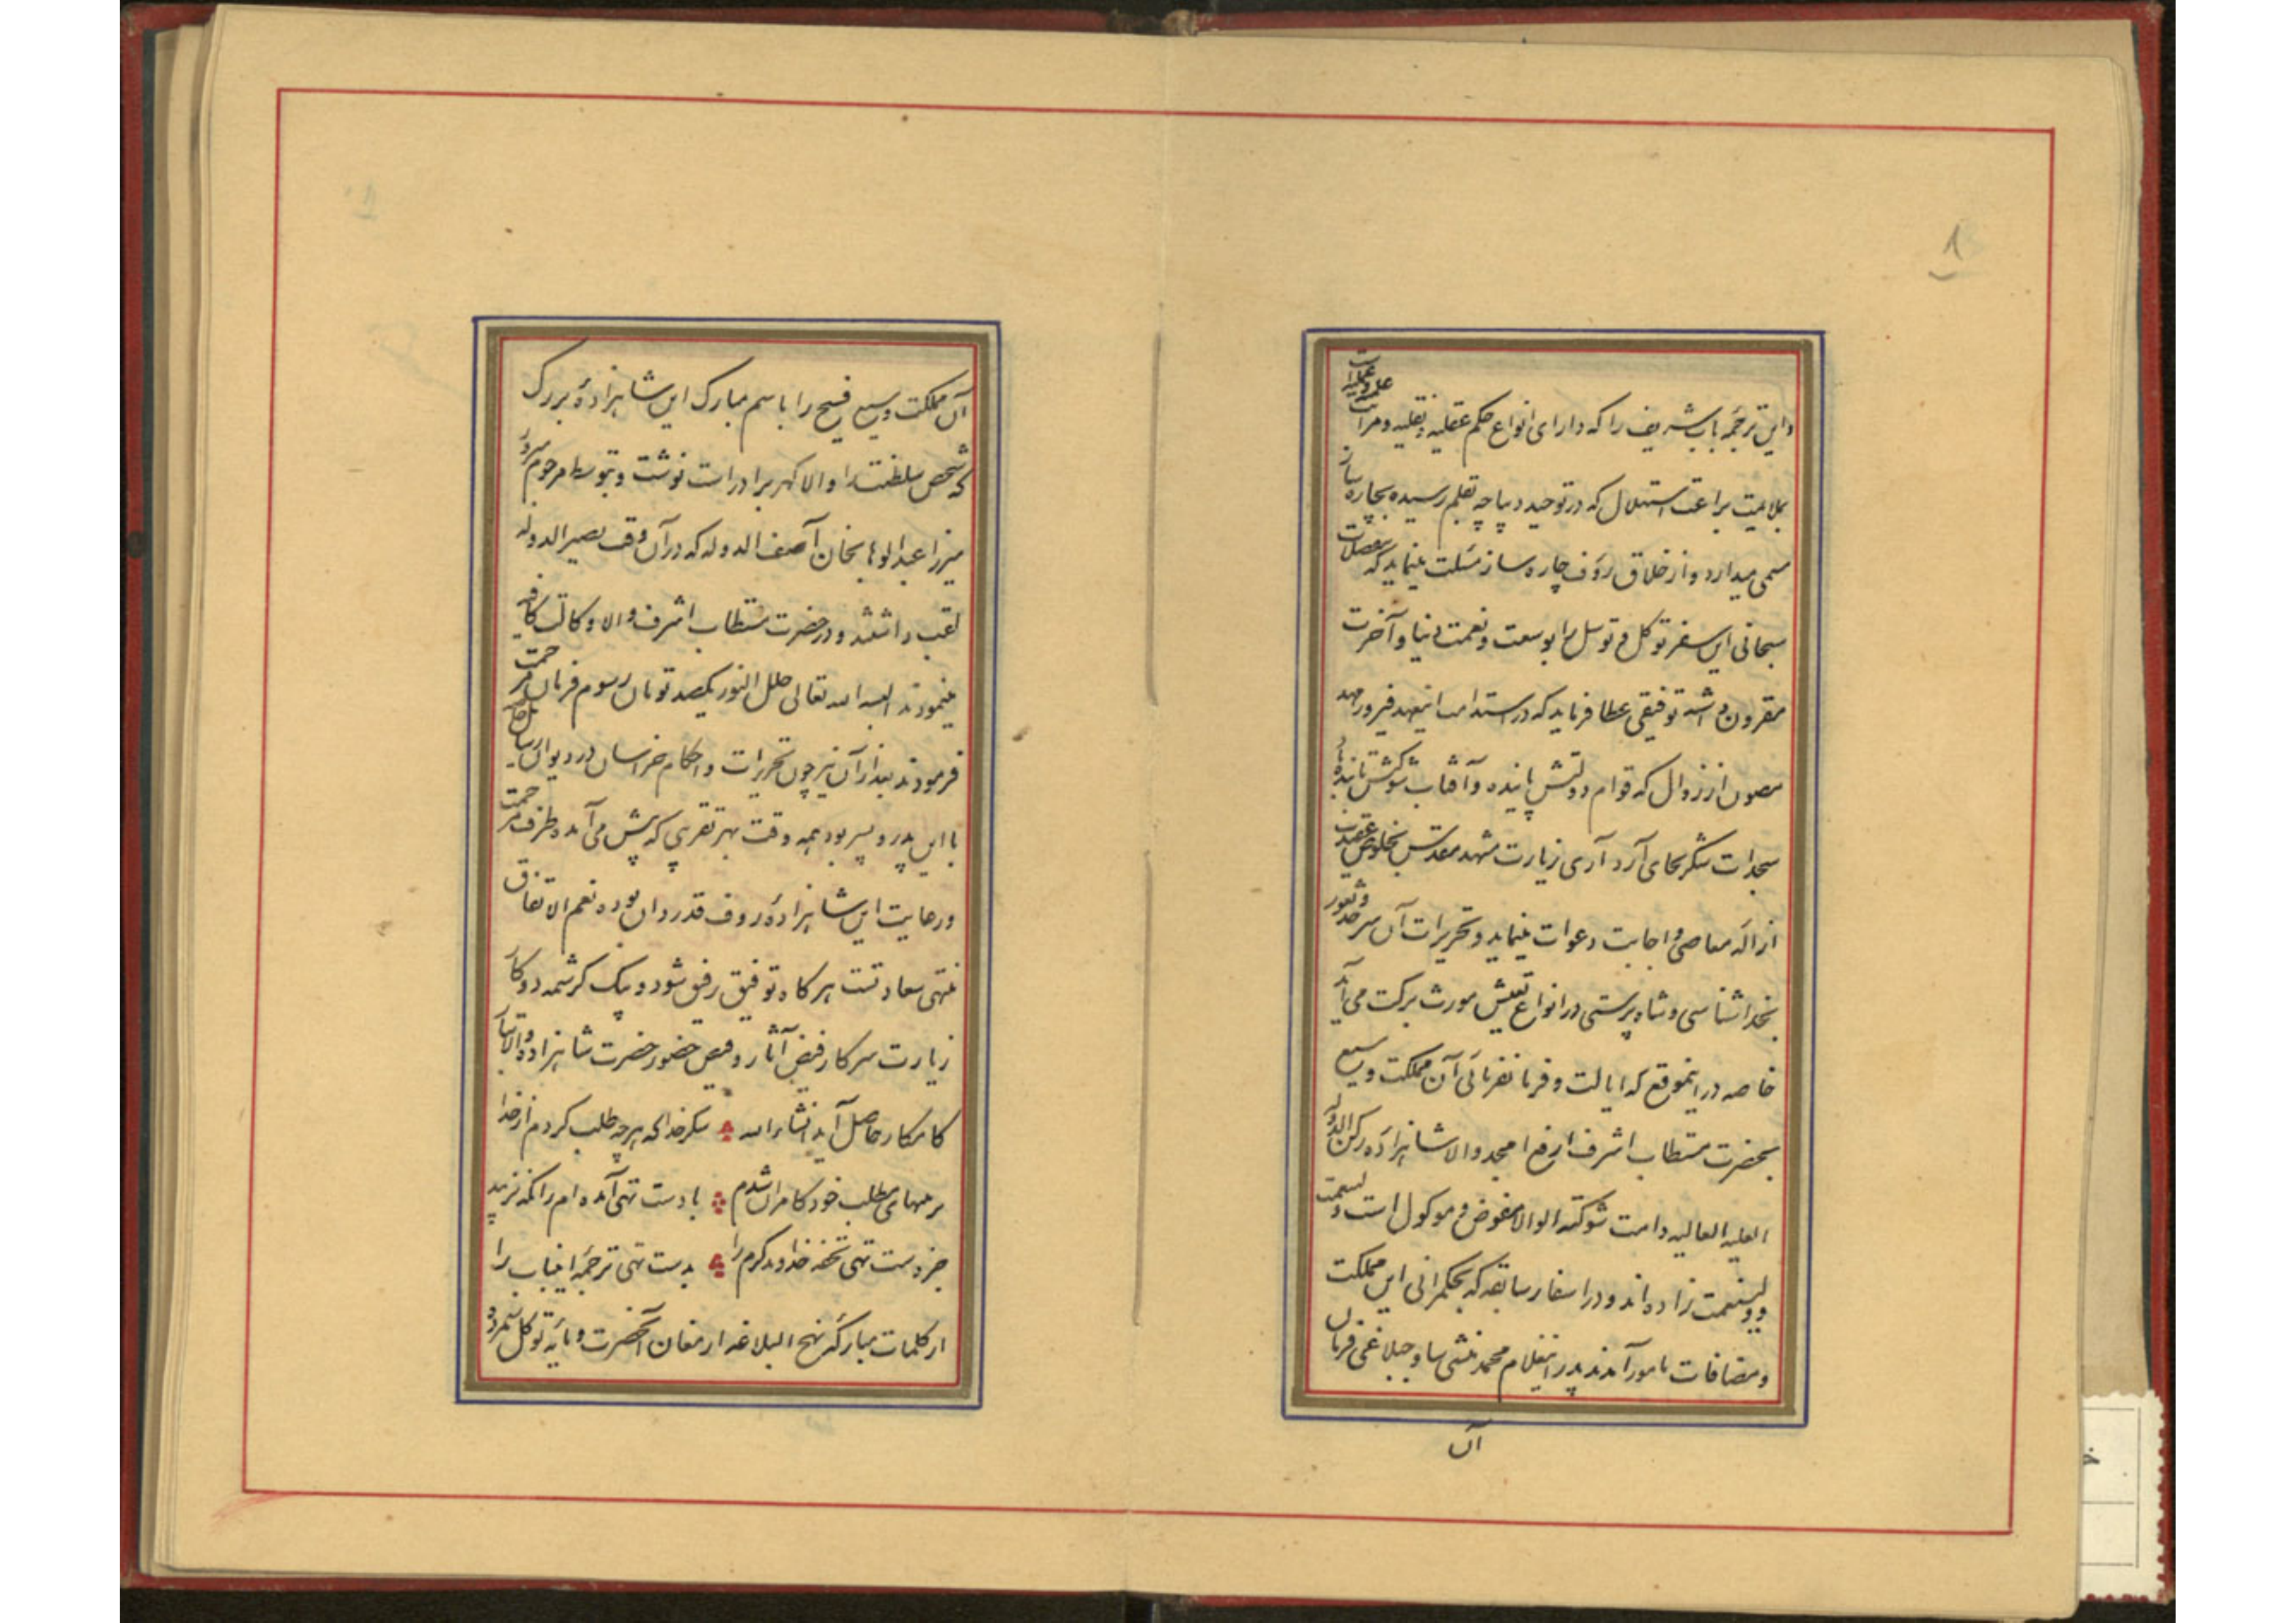 ۸
و این ترجمهٔ باب شریف را که دارای انواع حکم عقلیه و نقلیه و مراتب علمیه و عملیات
بملایمت براعت استهلال که در توحید دیباچه بقلم رسیده بچاره ساز
مسمی میدارد و از خلاق رؤف چاره ساز مسئلت مینماید که بتفضلات
سبحانی این سفر توکل و توسل را بوسعت و نعمت دنیا و آخرت
مقرون داشته توفیقی عطا فرماید که در استدامت این عهد فیروز مهد
مصون از زوال که قوام دولتش پاینده و آفتاب شوکتش تابنده باد
سجدات شکر بجای آرد آری زیارت مشهد مقدس بخلوص عقیدت
ازاله معاصی و اجابت دعوات مینماید و تحریرات آن سرحد و ثغور
بخداشناسی و شاه پرستی در انواع تعیش مورث برکت می آید
خاصه در اینموقع که ایالت و فرمانفرمائی آن مملکت وسیع
بحضرت مستطاب اشرف ارفع امجد والا شاهزاده رکن الدوله
العلیه العالیه دامت شوکته الوالا مفوض و موکول است ولینعمت
و ولینعمت زاده اند و در اسفار سابقه که بحکمرانی این مملکت
و مضافات مامور آمدند پدر اینغلام محمد منشی ساوجبلاغی فرمان
آن
آن مملکت وسیع فسیح را باسم مبارک این شاهزادهٔ بزرگ
که شخص سلطنت را والا گهر برادر است نوشت و بتوسط مرحوم مبرور
میرزا عبدالوهابخان آصف الدوله که در آن وقت نصیرالدوله
لقب داشتند و در حضرت مستطاب اشرف والا وکالت کافیه
مینمودند البسه الله تعالی حلل النور یکصد تومان رسوم فرمان مرحمت
فرمودند بعد از آن نیز چون تحریرات و احکام خراسان در دیوان رسایل خاصه
با این پدر و پسر بود همه وقت بهر تقریبی که پیش می آمده طرف مرحمت
و رعایت این شاهزادهٔ رؤف قدردان بوده نعم الاتفاق
منتهی سعادتست هر گاه توفیق رفیق شود و بیک کرشمه دو کار
زیارت سرکار فیض آثار و فیض حضور حضرت شاهزاده والاتبار
کامکار حاصل آید انشاءالله شکر خدا که هر چه طلب کردم از خدا
بر منتهای مطلب خود کامران شدم با دست تهی آمده ام زانکه نزیبد
جز دست تهی تحفه خداوند کرم را بدست تهی ترجمهٔ اینباب را
از کلمات مبارکهٔ نهج البلاغه ارمغان آنحضرت و مایه توکل شمرده